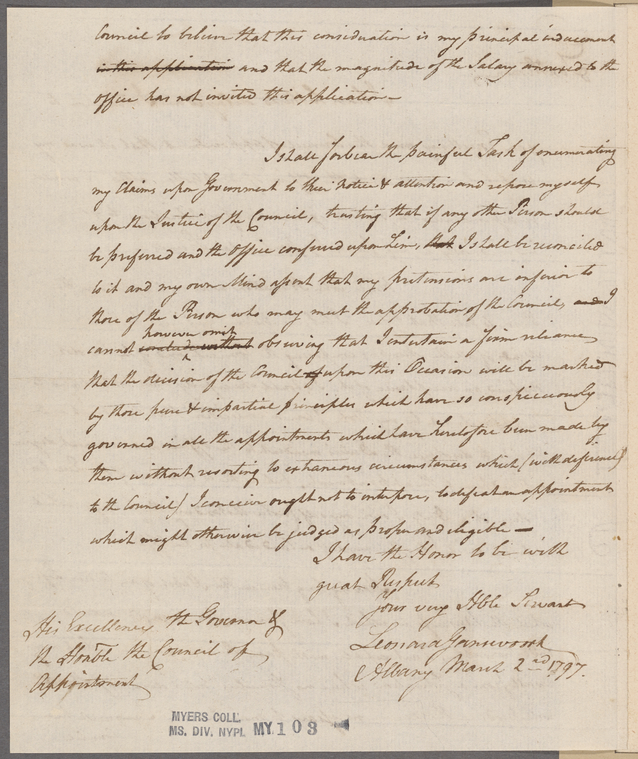 Council to believe that this consideration is my principal inducement
in this application and that the magnitude of the Salary annexed to the
office has not invited this application —
I shall forbear the painful Task of enumerating
my Claims upon Government to their Notice & attention and repose myself
upon the Justice of the Council, trusting that if any other Person should
be preferred and the Office conferred upon him, that I shall be reconciled
to it and my own Mind assent that my pretensions are inferior to
those of the Person who may meet the approbation of the Council, and I
however omit
cannot conclude without observing that I entertain a firm reliance
that the decision of the Council of upon this Occasion will be marked
by those pure & impartial principles which have so conspicuously
governed in all the appointments which have heretofore been made by
them without resorting to extraneous circumstances which (with deference
to the Council) I conceive ought not to interpose, to defeat an appointment
which might otherwise be judged as proper and eligible —
I have the Honor to be with
great Respect
Your very Hble Servant
Leonard Gansevoort
Albany March 2nd 1797.
His Excellency the Governor &
the Honble the Council of
Appointment
MYERS COLL.
MS. DIV. NYPL MY 103